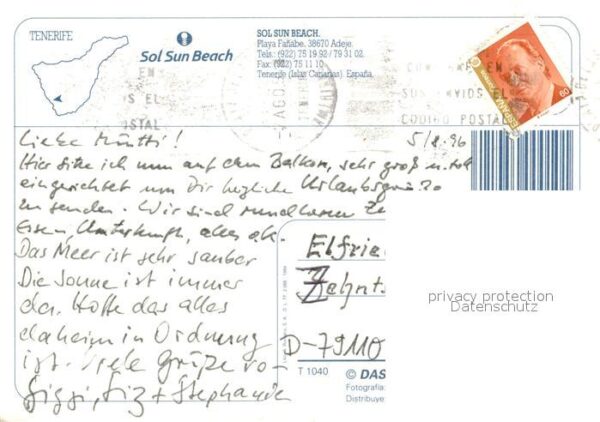 TENERIFE
Sol Sun Beach
SOL SUN BEACH.
Playa Fañabe. 38670 Adeje.
Tels.: (922) 75 19 92 / 79 31 02.
Fax: (922) 75 11 10
Tenerife (Islas Canarias). España.
EN
EL
POSTAL
AGO
EN
SUS ENVIOS EL
CODIGO POSTAL
60
Liebe Mutti!
5/8.96
Hier sitze ich nun auf dem Balkon, sehr groß u. toll
eingerichtet um Dir herzliche Urlaubsgrüße
zu senden. Wir sind
Essen, Unterkunft, alles ok.
Das Meer ist sehr sauber
Die Sonne ist immer
da. Hoffe das alles
daheim in Ordnung
ist. Viele Grüße vo-
Siggi, Siz + Stephanie
Elfrie
Zehnt
D-79110
privacy protection
Datenschutz
T 1040
© DAS
Fotografía:
Distribuye